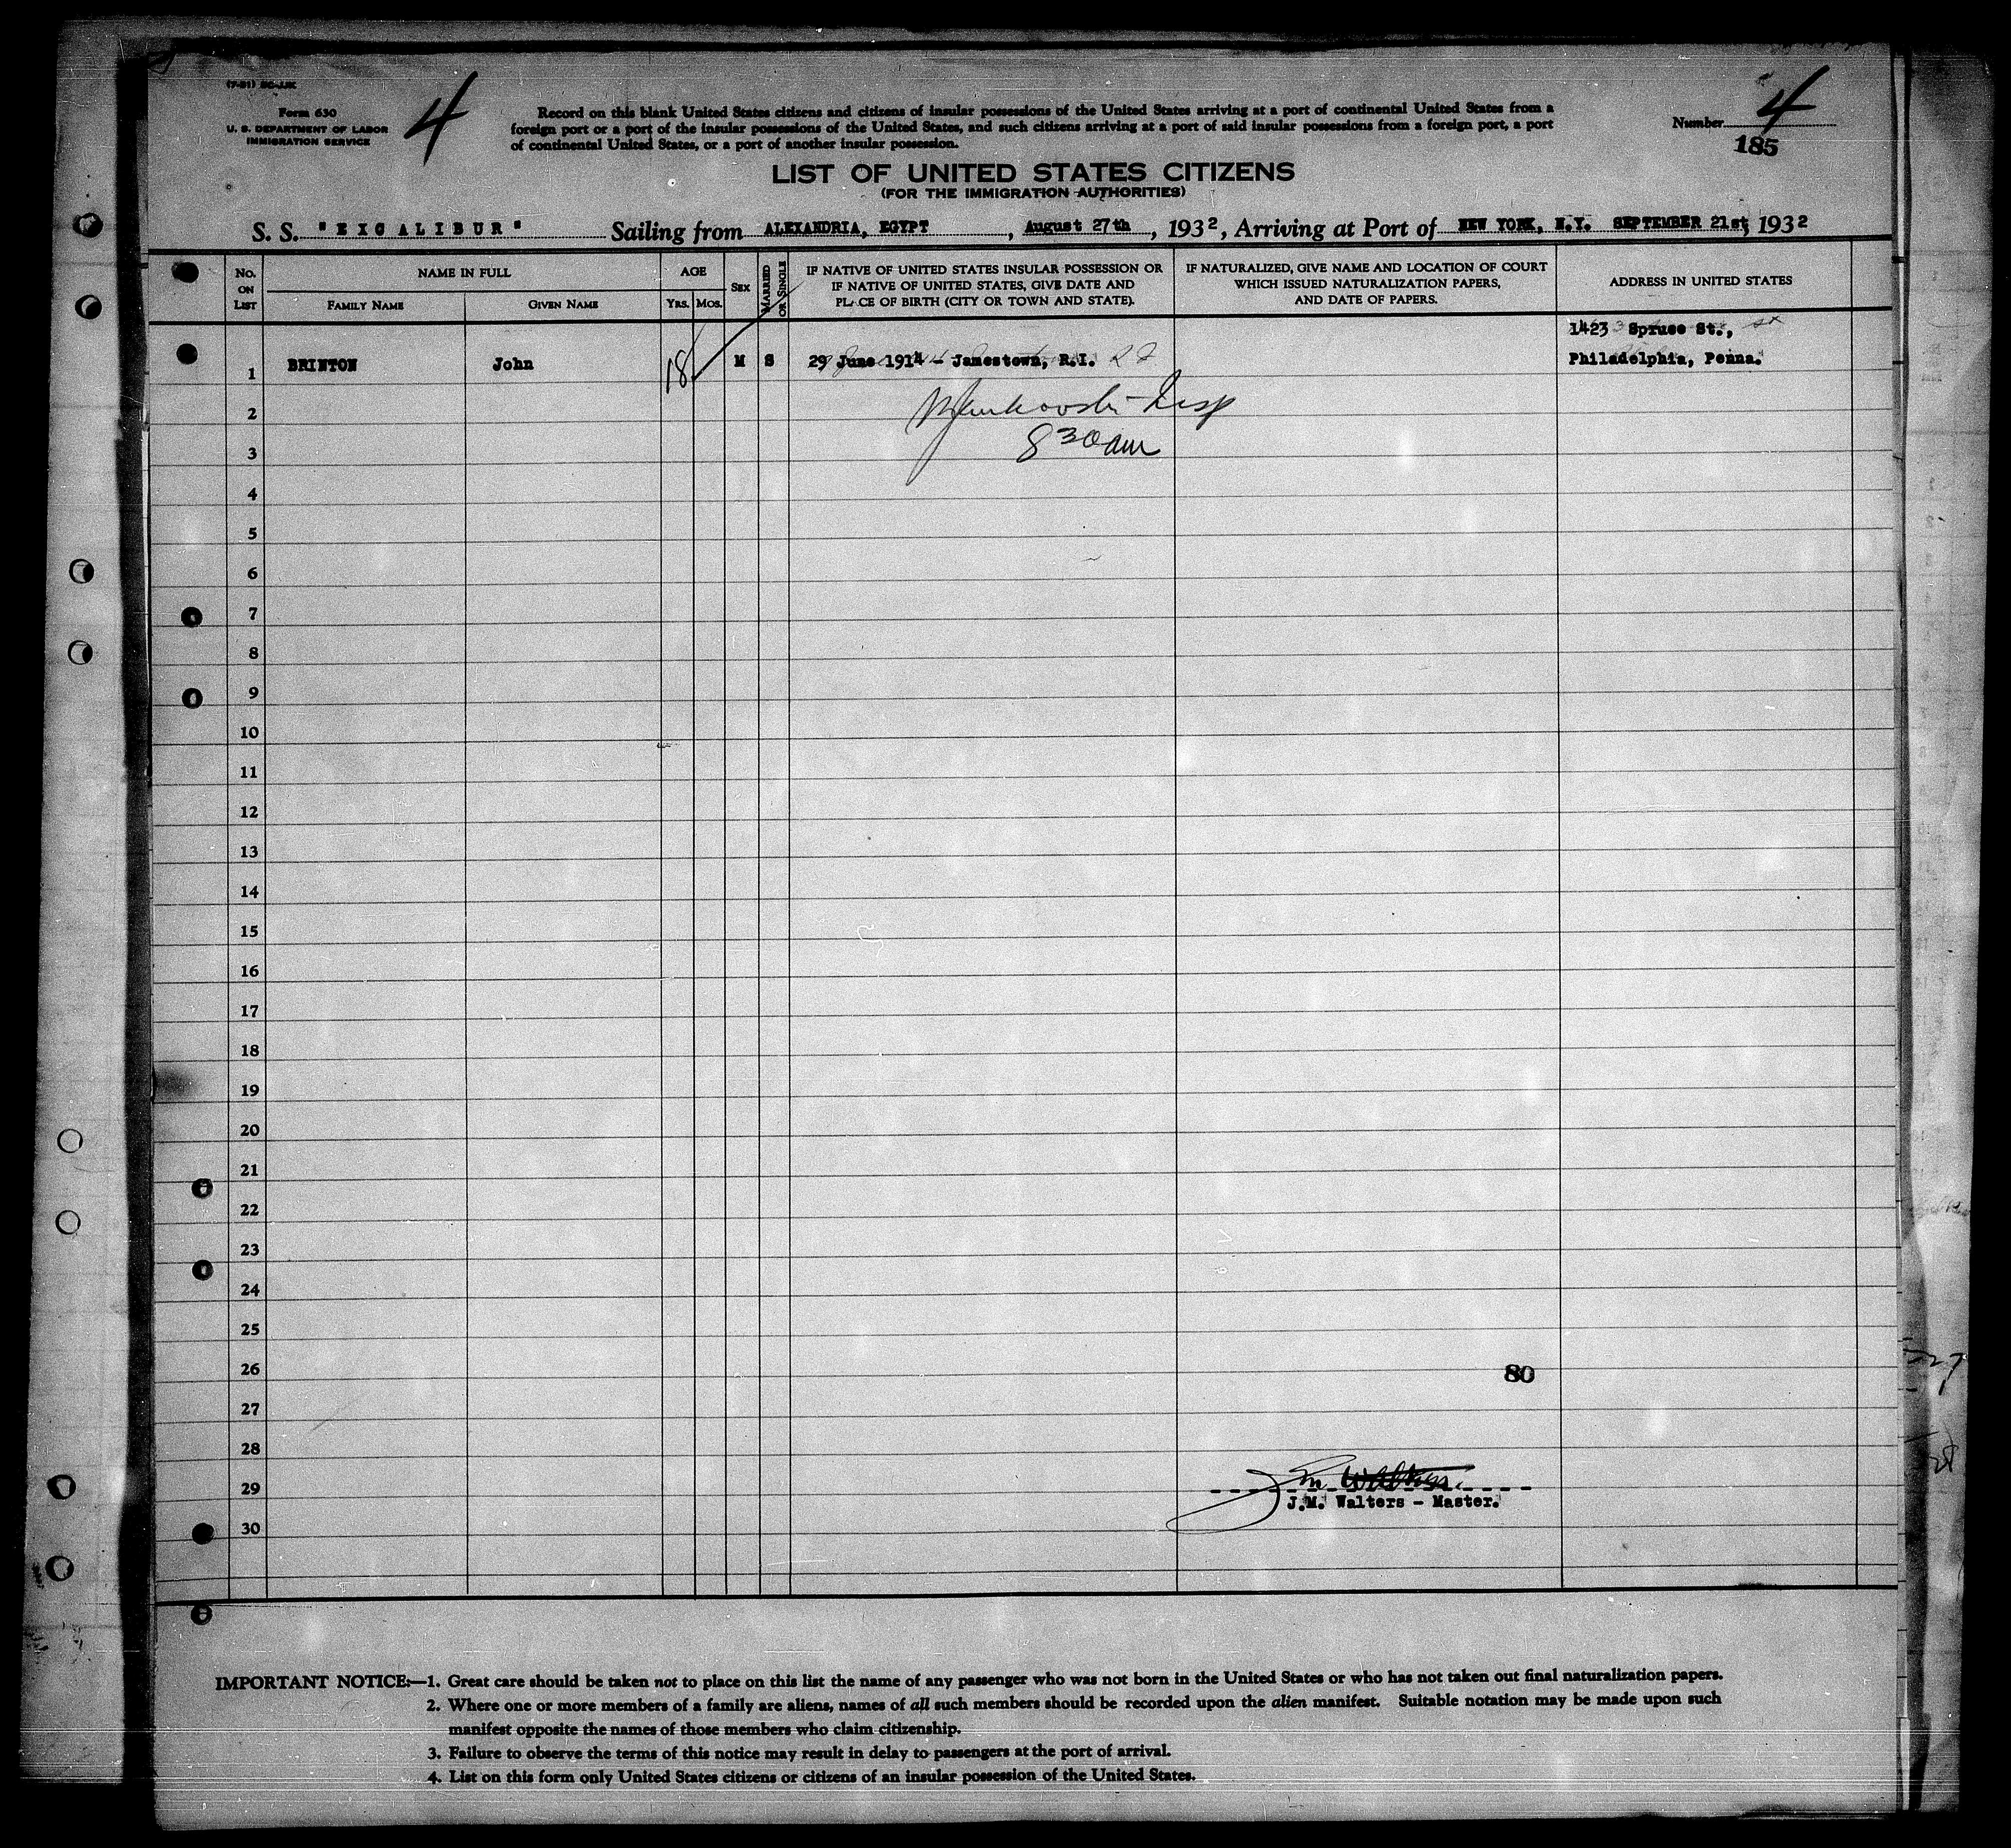 (7-31)
Form 630
U. S. DEPARTMENT OF LABOR
IMMIGRATION SERVICE
4
Record on this blank United States citizens and citizens of insular possessions of the United States arriving at a port of continental United States from a
foreign port or a port of the insular possessions of the United States, and such citizens arriving at a port of said insular possessions from a foreign port, a port
of continental United States, or a port of another insular possession.
Number 4
185
LIST OF UNITED STATES CITIZENS
(FOR THE IMMIGRATION AUTHORITIES)
S. S. "EXCALIBUR" Sailing from ALEXANDRIA, EGYPT, August 27th, 1932, Arriving at Port of NEW YORK, N.Y. SEPTEMBER 21st, 1932
No. ON LIST
NAME IN FULL
FAMILY NAME
GIVEN NAME
AGE
YRS.
MOS.
SEX
MARRIED OR SINGLE
IF NATIVE OF UNITED STATES INSULAR POSSESSION OR
IF NATIVE OF UNITED STATES, GIVE DATE AND
PLACE OF BIRTH (CITY OR TOWN AND STATE).
IF NATURALIZED, GIVE NAME AND LOCATION OF COURT
WHICH ISSUED NATURALIZATION PAPERS,
AND DATE OF PAPERS.
ADDRESS IN UNITED STATES
1423 Spruce St.,
1 BRINTON John 18 M S 29 June 1914 - Jamestown, R.I. Philadelphia, Penna.
2
8 30 am
3
4
5
6
7
8
9
10
11
12
13
14
15
16
17
18
19
20
21
22
23
24
25
26
80
27
28
29
J.M. Walters - Master.
30
IMPORTANT NOTICE:—1. Great care should be taken not to place on this list the name of any passenger who was not born in the United States or who has not taken out final naturalization papers.
2. Where one or more members of a family are aliens, names of all such members should be recorded upon the alien manifest. Suitable notation may be made upon such
manifest opposite the names of those members who claim citizenship.
3. Failure to observe the terms of this notice may result in delay to passengers at the port of arrival.
4. List on this form only United States citizens or citizens of an insular possession of the United States.